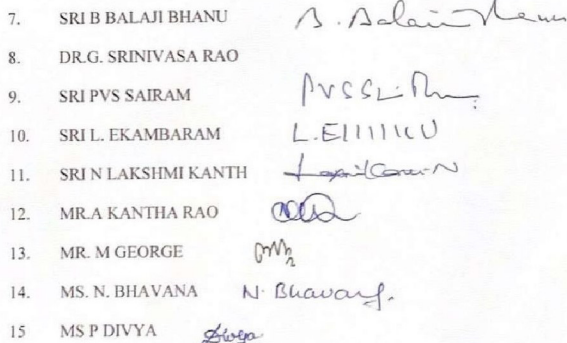 7. SRI B BALAJI BHANU B. Balaji Bhanu
8. DR.G. SRINIVASA RAO
9. SRI PVS SAIRAM
10. SRI L. EKAMBARAM
11. SRI N LAKSHMI KANTH
12. MR.A KANTHA RAO
13. MR. M GEORGE
14. MS. N. BHAVANA N. Bhavana.
15 MS P DIVYA Divya